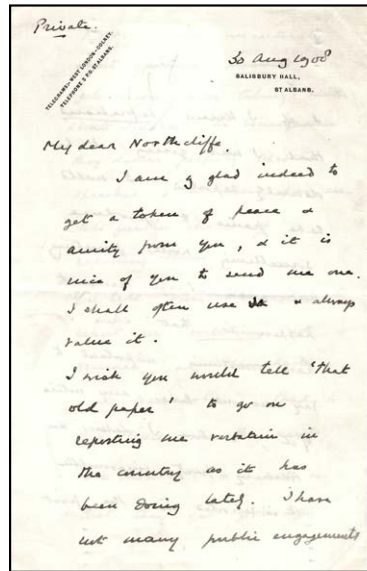 Private.
TELEGRAMS—WEST LONDON-COLNEY.
TELEPHONE 2 P.O. ST ALBANS.
30 Aug 1908
SALISBURY HALL,
ST ALBANS.
My dear Northcliffe.
I am glad indeed to
get a token of peace &
amity from you, & it is
nice of you to send me one.
I shall often use it & always
value it.
I wish you would tell 'that
old paper' to go on
reporting me verbatim in
the country as it has
been doing lately. I have
not many public engagements